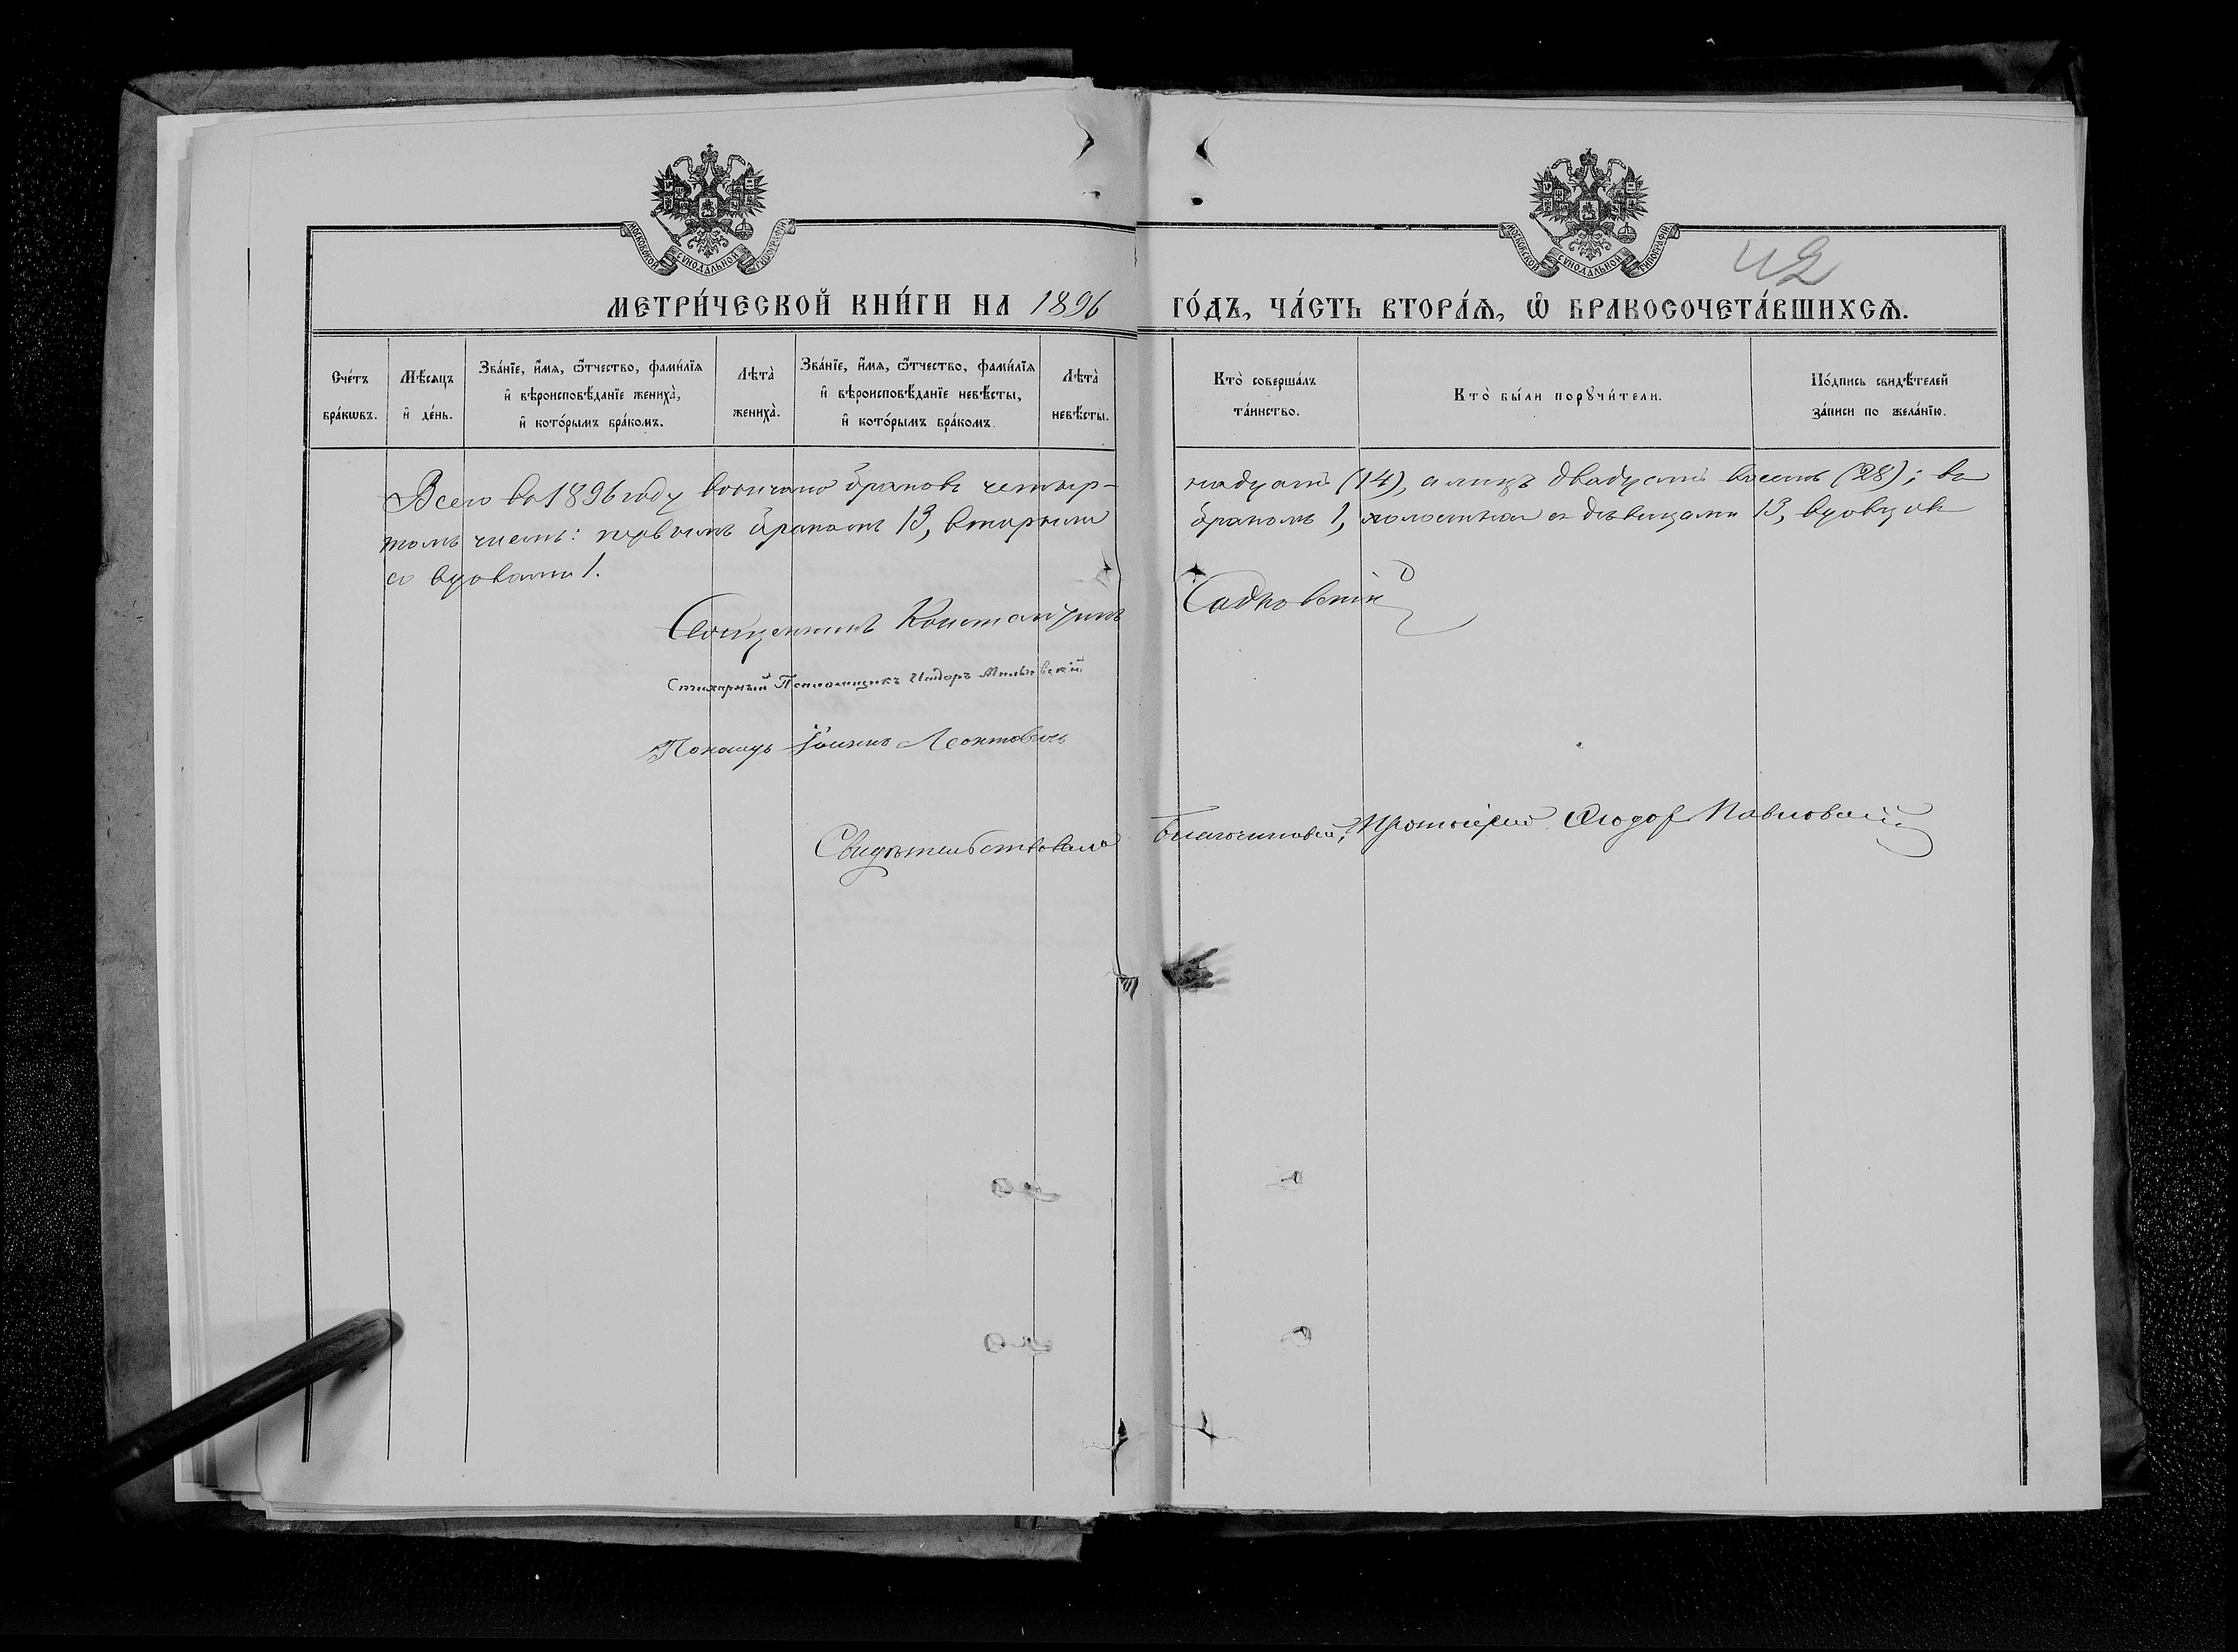 МОСКОВСКОЙ СѴНОДАЛЬНОЙ ТИПОГРАФІИ
МОСКОВСКОЙ СѴНОДАЛЬНОЙ ТИПОГРАФІИ
42
МЕТРИ́ЧЕСКОЙ КНИ́ГИ НА 1896 ГО́ДЪ, ЧА́СТЬ ВТОРА́Ѧ, Ѡ҆ БРАКОСОЧЕТА́ВШИХСѦ.
Сче́тъ бра́кѡвъ.
Мѣ́сѧцъ и҆ де́нь.
Зва́нїе, и҆́мѧ, ѻ҆́тчество, фами́лїѧ и҆ вѣроисповѣ́данїе жениха̀, и҆ кото́рымъ бра́комъ.
Лѣта̀ жениха̀.
Зва́нїе, и҆́мѧ, ѻ҆́тчество, фами́лїѧ и҆ вѣроисповѣ́данїе невѣ́сты, и҆ кото́рымъ бра́комъ.
Лѣта̀ невѣ́сты.
Кто̀ соверша́лъ та́инство.
Кто̀ бы́ли порꙋчи́тели.
По́дпись свидѣ́телей за́писи по жела́нїю.
Всего въ 1896 году вѣнчано браковъ четыр-надцать (14), а лицъ двадцать восемь (28); въ
томъ числѣ: первымъ бракомъ 13, вторымъ бракомъ 1, холостыхъ съ дѣвицами 13, вдовцовъ
со вдовами 1.
Священникъ Константинъ Садковскій
Стихарный Псаломщикъ Исидоръ Мильевскій
Пономарь Іоаннъ Леонтовичъ
Свидѣтельствовалъ Благочинный, Протоіерей Ѳеодоръ Павловскій